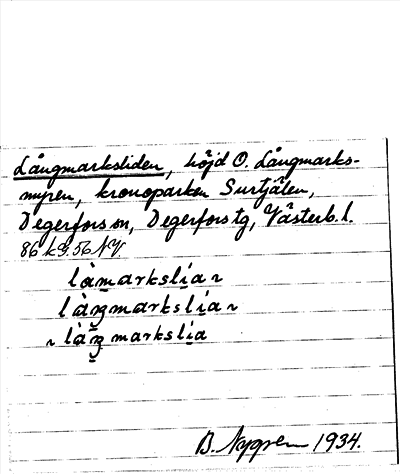 Långmarksliden, höjd O. Långmarks-
myren, kronoparken Surtjälen,
Degerfors sn, Degerfors tg, Västerb. l.
86 k G. 56 NV.
làmarkslia
làŋmarkslia
làŋ markslia
B. 1934.